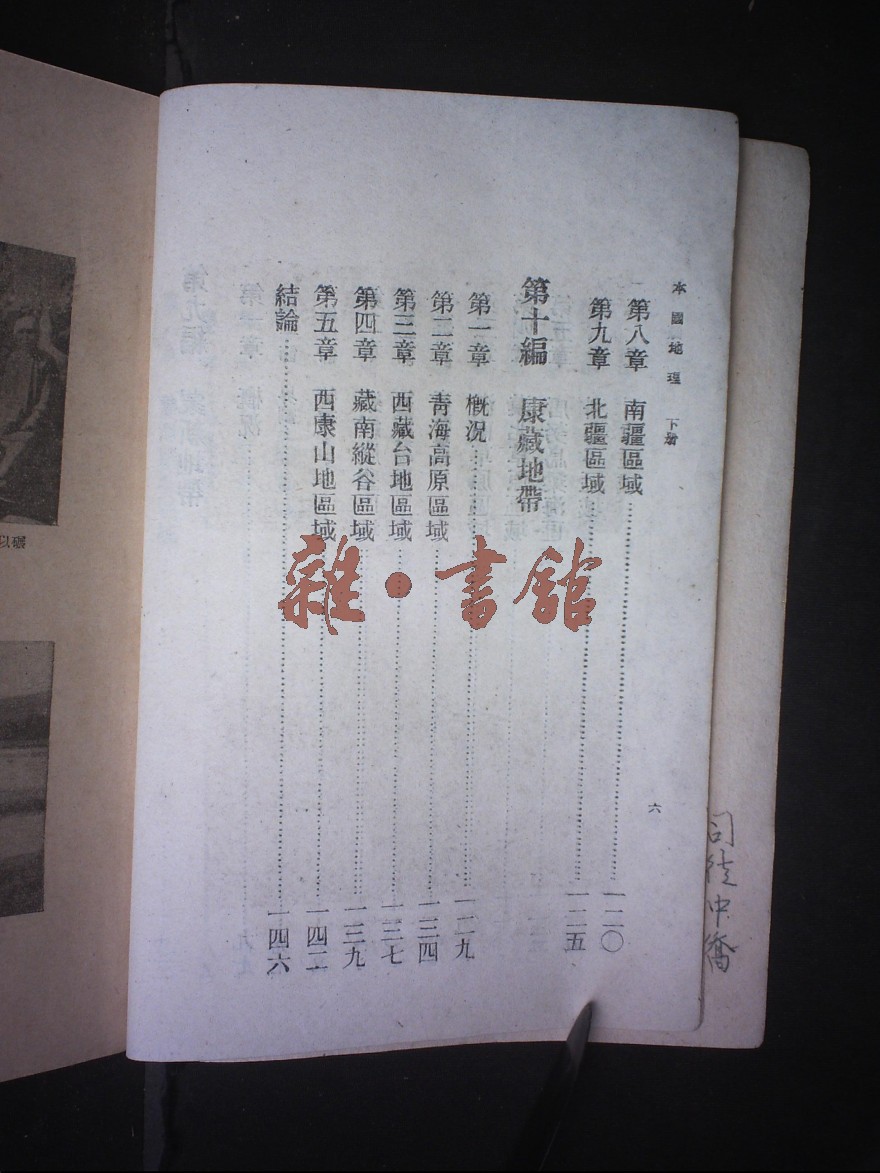 本國地理 下册
第八章 南疆區域……一二〇
第九章 北疆區域……一二五
第十編 康藏地帶
第一章 概況……一二九
第二章 靑海高原區域……一三四
第三章 西藏台地區域……一三七
第四章 藏南縱谷區域……一三九
第五章 西康山地區域……一四二
結論……一四六
六
雜·書舘
以碾
司徒中喬